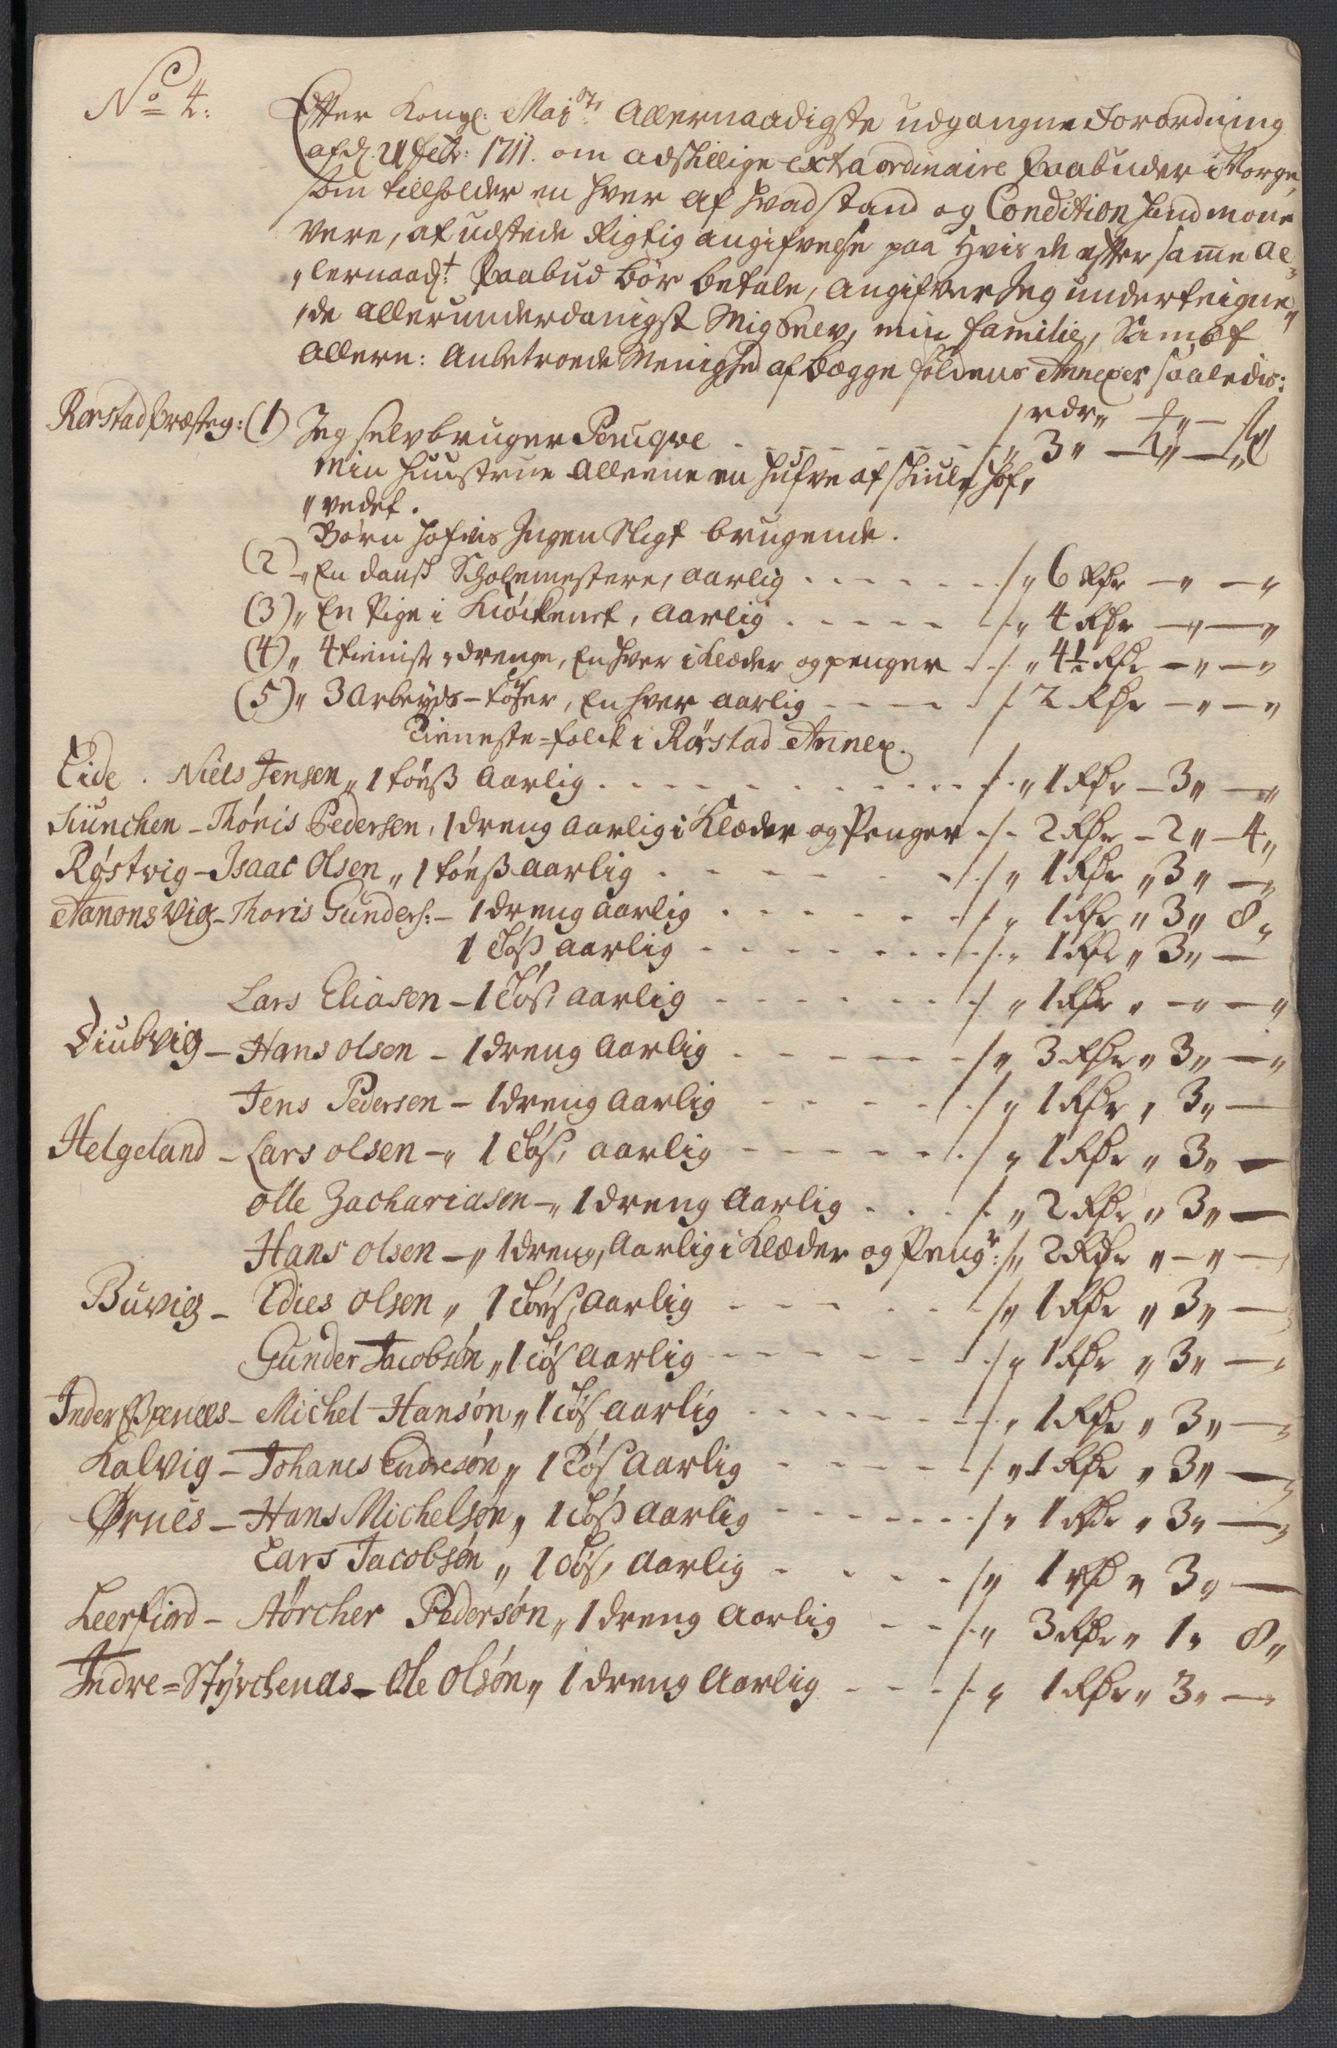 No 4:
Efter Kongl: Maists Allernaadigste udgangne Forordning
af d. 21 febr: 1711. om adskillige extraordinaire Paabuder i Norge,
som tillholder en hver af hvad stand og Condition hand monne
være, at udstede Rigtig angifvelse paa hvis de efter samme al-
lernaadt: Paabud bør betale, Angifver Jeg underteigne,,
,,de allerunderdanigst Mig Selv, min familie, Sampt
Allern: Anbetroede Menighed af Begge foldens Annexer saaledis:
Rørstad Præsteg: (1) Jeg selv bruger Peruqve - - - 3,,
rdr,,
Min Huustrue Alleene en Hufve af skiule Hof,,
,,vedet.
Børn hofvis Ingen Sligt brugende.
(2),, En dansk Scholemestere, aarlig . . . 6 Rdr — —
(3),, En Pige i Kiøckenet, Aarlig . - - - 4 Rdr — —
(4),, 4 tieniste drenge, En hver i Klæder og penger 4½ Rdr — —
(5),, 3 Arbeyds-tøser, En hver aarlig - - - 2 Rdr — —
Tieneste-folck i Rørstad Annex.
Eide . Niels Jensen,, 1 tøuß Aarlig . . . 1 Rdr — 3,, —
- Thøris Pedersen, 1 dreng Aarlig i Klæder og Penger 2 Rdr - 2,, - 4,,
Røstvig - Isaac Olsen,, 1 tøuß aarlig . . . 1 Rdr,, 3,, —
Aanonsvig - Thoris Gunders: - 1 dreng aarlig . . . 1 Rdr,, 3,, 8,,
1 Tøß aarlig . . . 1 Rdr,, 3,, —
Lars Eliasen - 1 Tøs, aarlig - - - 1 Rdr,, — —
Diubvig - Hans olsen - 1 dreng Aarlig . - - - 3 Rdr,, 3,, —
Jens Pedersen - 1 dreng Aarlig - - - 1 Rdr, 3,, —
Helgeland - Lars olsen -,, 1 Tøs, aarlig - - - 1 Rdr,, 3,, —
Olle Zachariasen -,, 1 dreng Aarlig . . . 2 Rdr,, 3,, —
Hans olsen -,, 1 dreng, Aarlig i Klæder og Pengr: 2 Rdr,, — —
Buvig - Edies olsen,, 1 Tøus, Aarlig - - - 1 Rdr,, 3,, —
Gunder Jacobsøn,, 1 Tøs Aarlig - - - 1 Rdr,, 3,, —
- Michel Hansøn,, 1 Tøs Aarlig - - - 1 Rdr,, 3,, —
Kalvig - Johanes Endresøn,, 1 Tøs Aarlig - - - 1 Rdr,, 3,, —
Ørnes - Hans Michelsøn,, 1 Tøß Aarlig - - - 1 Rdr,, 3,, —
Lars Jacobsøn,, 1 Tøs, Aarlig - - - 1 Rdr 3,, —
Leerfiord - Aørcher Pedersøn,, 1 dreng Aarlig - - 3 Rdr,, 1,, 8,,
Indre=Styrchenæs - Ole Olsøn,, 1 dreng Aarlig . - - - 1 Rdr,, 3,, —